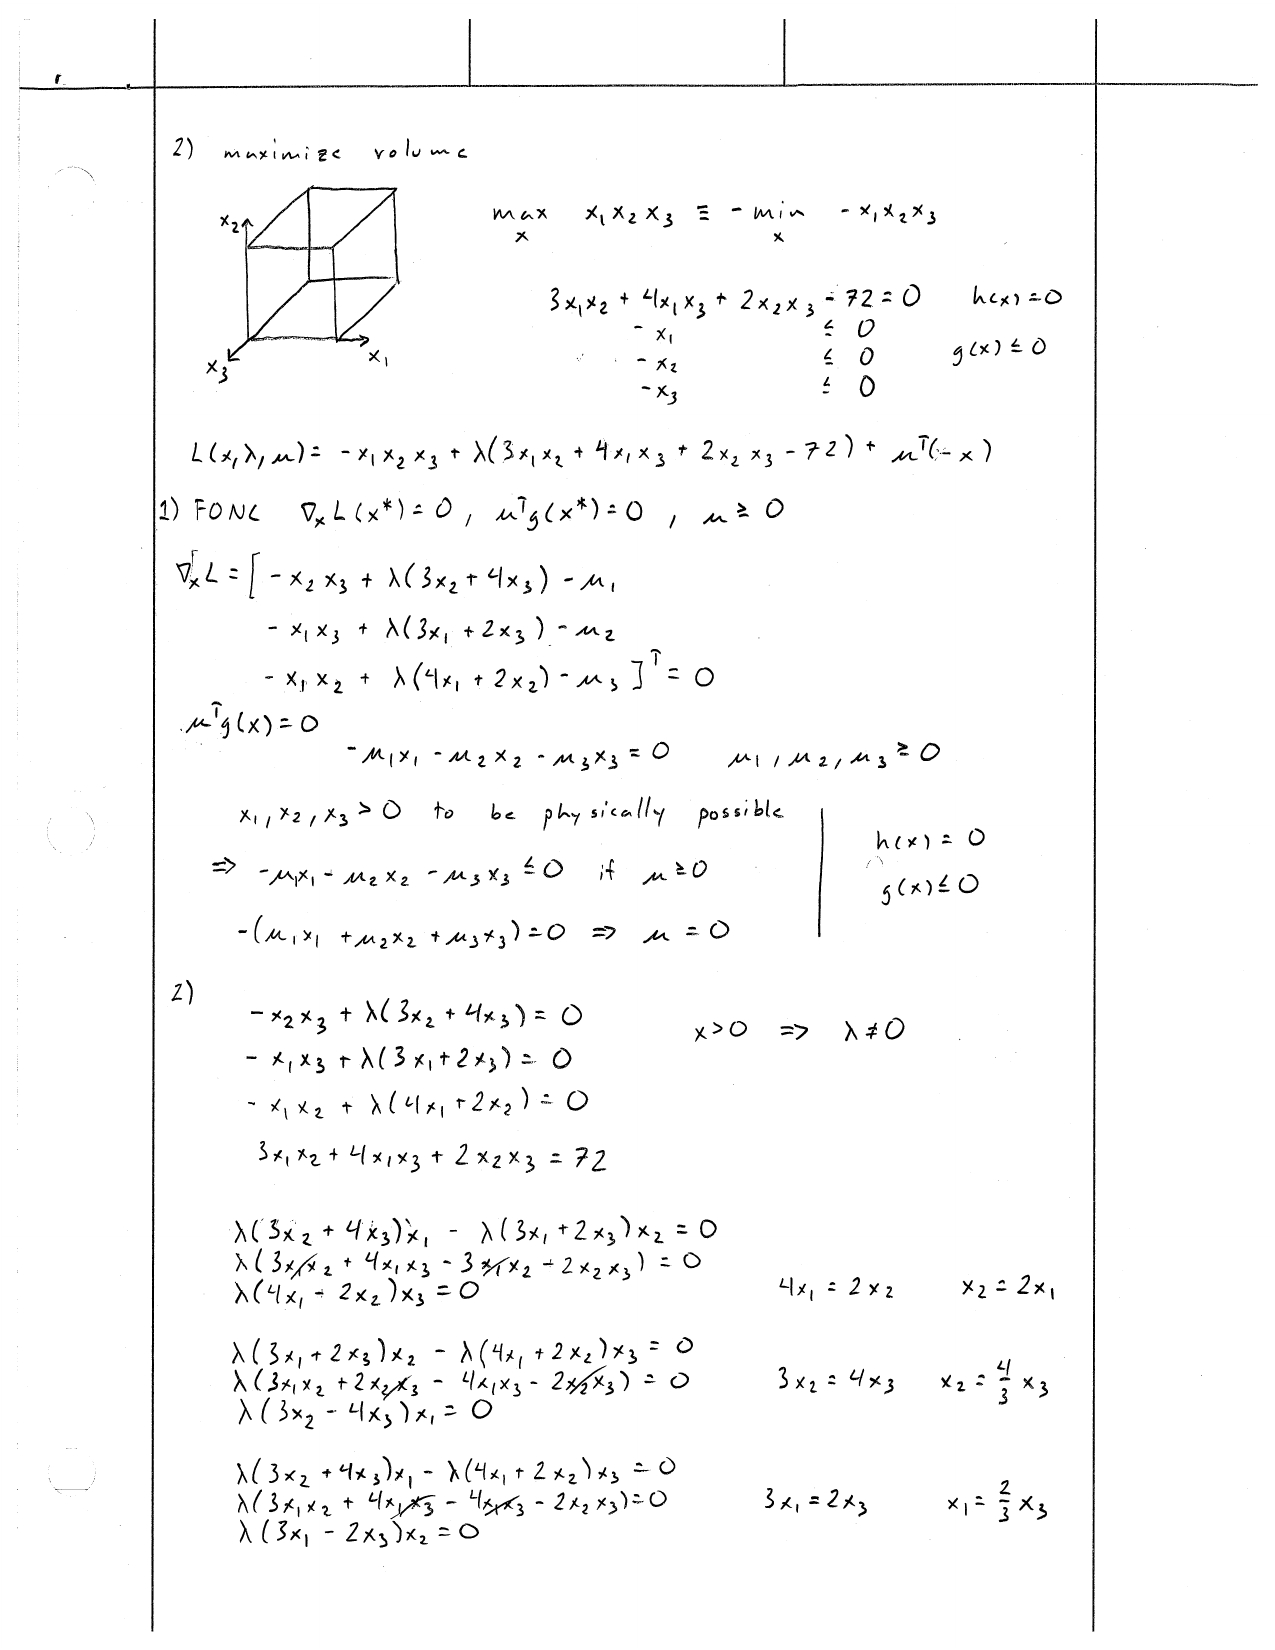 2) maximize volume
x₂
x₁
x₃
max x₁x₂x₃ ≡ -min -x₁x₂x₃
x x
3x₁x₂ + 4x₁x₃ + 2x₂x₃ - 72 = 0 h(x) = 0
-x₁ ≤ 0
-x₂ ≤ 0 g(x) ≤ 0
-x₃ ≤ 0
L(x,λ,μ) = -x₁x₂x₃ + λ(3x₁x₂ + 4x₁x₃ + 2x₂x₃ - 72) + μᵀ(-x)
1) FONC ∇ₓL(x*) = 0, μᵀg(x*) = 0, μ ≥ 0
∇ₓL = [ -x₂x₃ + λ(3x₂ + 4x₃) - μ₁
-x₁x₃ + λ(3x₁ + 2x₃) - μ₂
-x₁x₂ + λ(4x₁ + 2x₂) - μ₃ ]ᵀ = 0
μᵀg(x) = 0
-μ₁x₁ - μ₂x₂ - μ₃x₃ = 0 μ₁, μ₂, μ₃ ≥ 0
x₁, x₂, x₃ > 0 to be physically possible
h(x) = 0
⇒ -μ₁x₁ - μ₂x₂ - μ₃x₃ ≤ 0 if μ ≥ 0
g(x) ≤ 0
-(μ₁x₁ + μ₂x₂ + μ₃x₃) = 0 ⇒ μ = 0
2)
-x₂x₃ + λ(3x₂ + 4x₃) = 0
x > 0 ⇒ λ ≠ 0
-x₁x₃ + λ(3x₁ + 2x₃) = 0
-x₁x₂ + λ(4x₁ + 2x₂) = 0
3x₁x₂ + 4x₁x₃ + 2x₂x₃ = 72
λ(3x₂ + 4x₃)x₁ - λ(3x₁ + 2x₃)x₂ = 0
λ(3x₁x₂ + 4x₁x₃ - 3x₁x₂ - 2x₂x₃) = 0
λ(4x₁ - 2x₂)x₃ = 0 4x₁ = 2x₂ x₂ = 2x₁
λ(3x₁ + 2x₃)x₂ - λ(4x₁ + 2x₂)x₃ = 0
λ(3x₁x₂ + 2x₂x₃ - 4x₁x₃ - 2x₂x₃) = 0 3x₂ = 4x₃ x₂ = 4/3 x₃
λ(3x₂ - 4x₃)x₁ = 0
λ(3x₂ + 4x₃)x₁ - λ(4x₁ + 2x₂)x₃ = 0
λ(3x₁x₂ + 4x₁x₃ - 4x₁x₃ - 2x₂x₃) = 0 3x₁ = 2x₃ x₁ = 2/3 x₃
λ(3x₁ - 2x₃)x₂ = 0